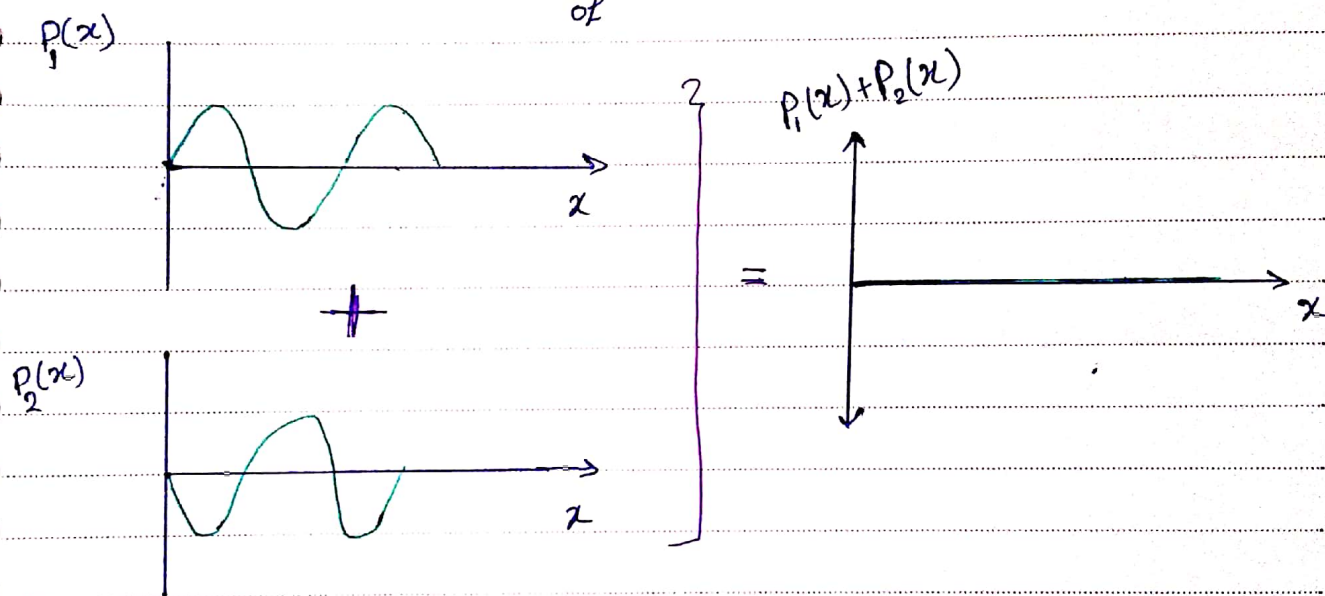 of
P₁(x)
x
+
P₂(x)
x
=
P₁(x)+P₂(x)
x